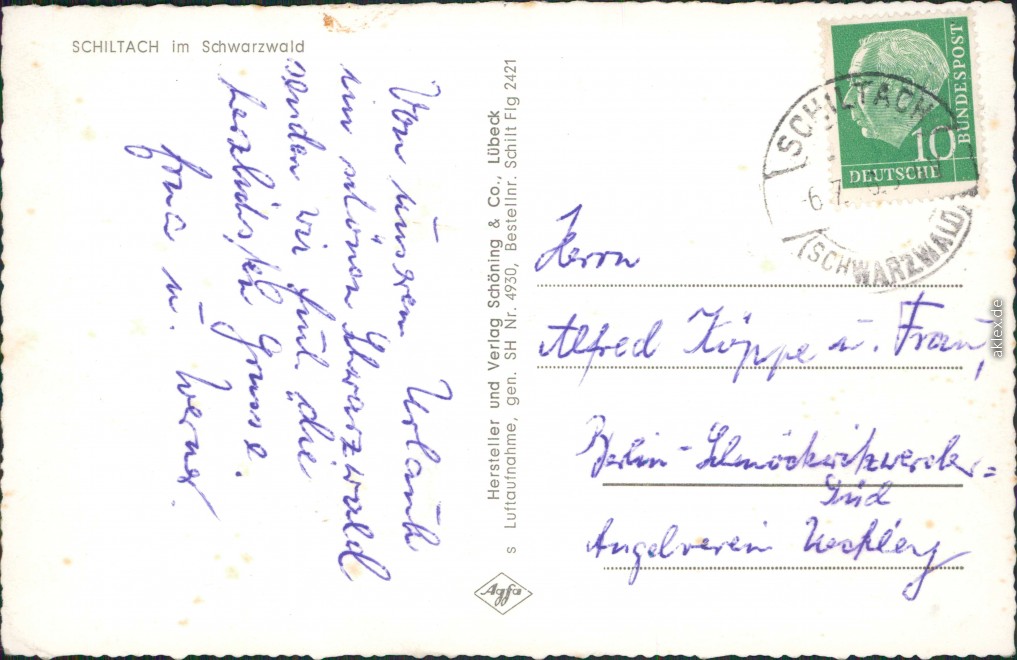 SCHILTACH im Schwarzwald
Von unsrem Urlaub
im schönen Schwarzwald
senden wir Euch die
herzlichsten Grüsse.
u. Werner.
Hersteller und Verlag Schöning & Co., Lübeck
s Luftaufnahme, gen. SH Nr. 4930, Bestellnr. Schilt Flg 2421
Agfa
10
DEUTSCHE
BUNDESPOST
SCHILTACH
6.7.
(SCHWARZWALD)
Herrn
Alfred Köppe u. Frau,
Berlin-Schmöckwitzwerder=
Süd
Angelverein
aklex.de